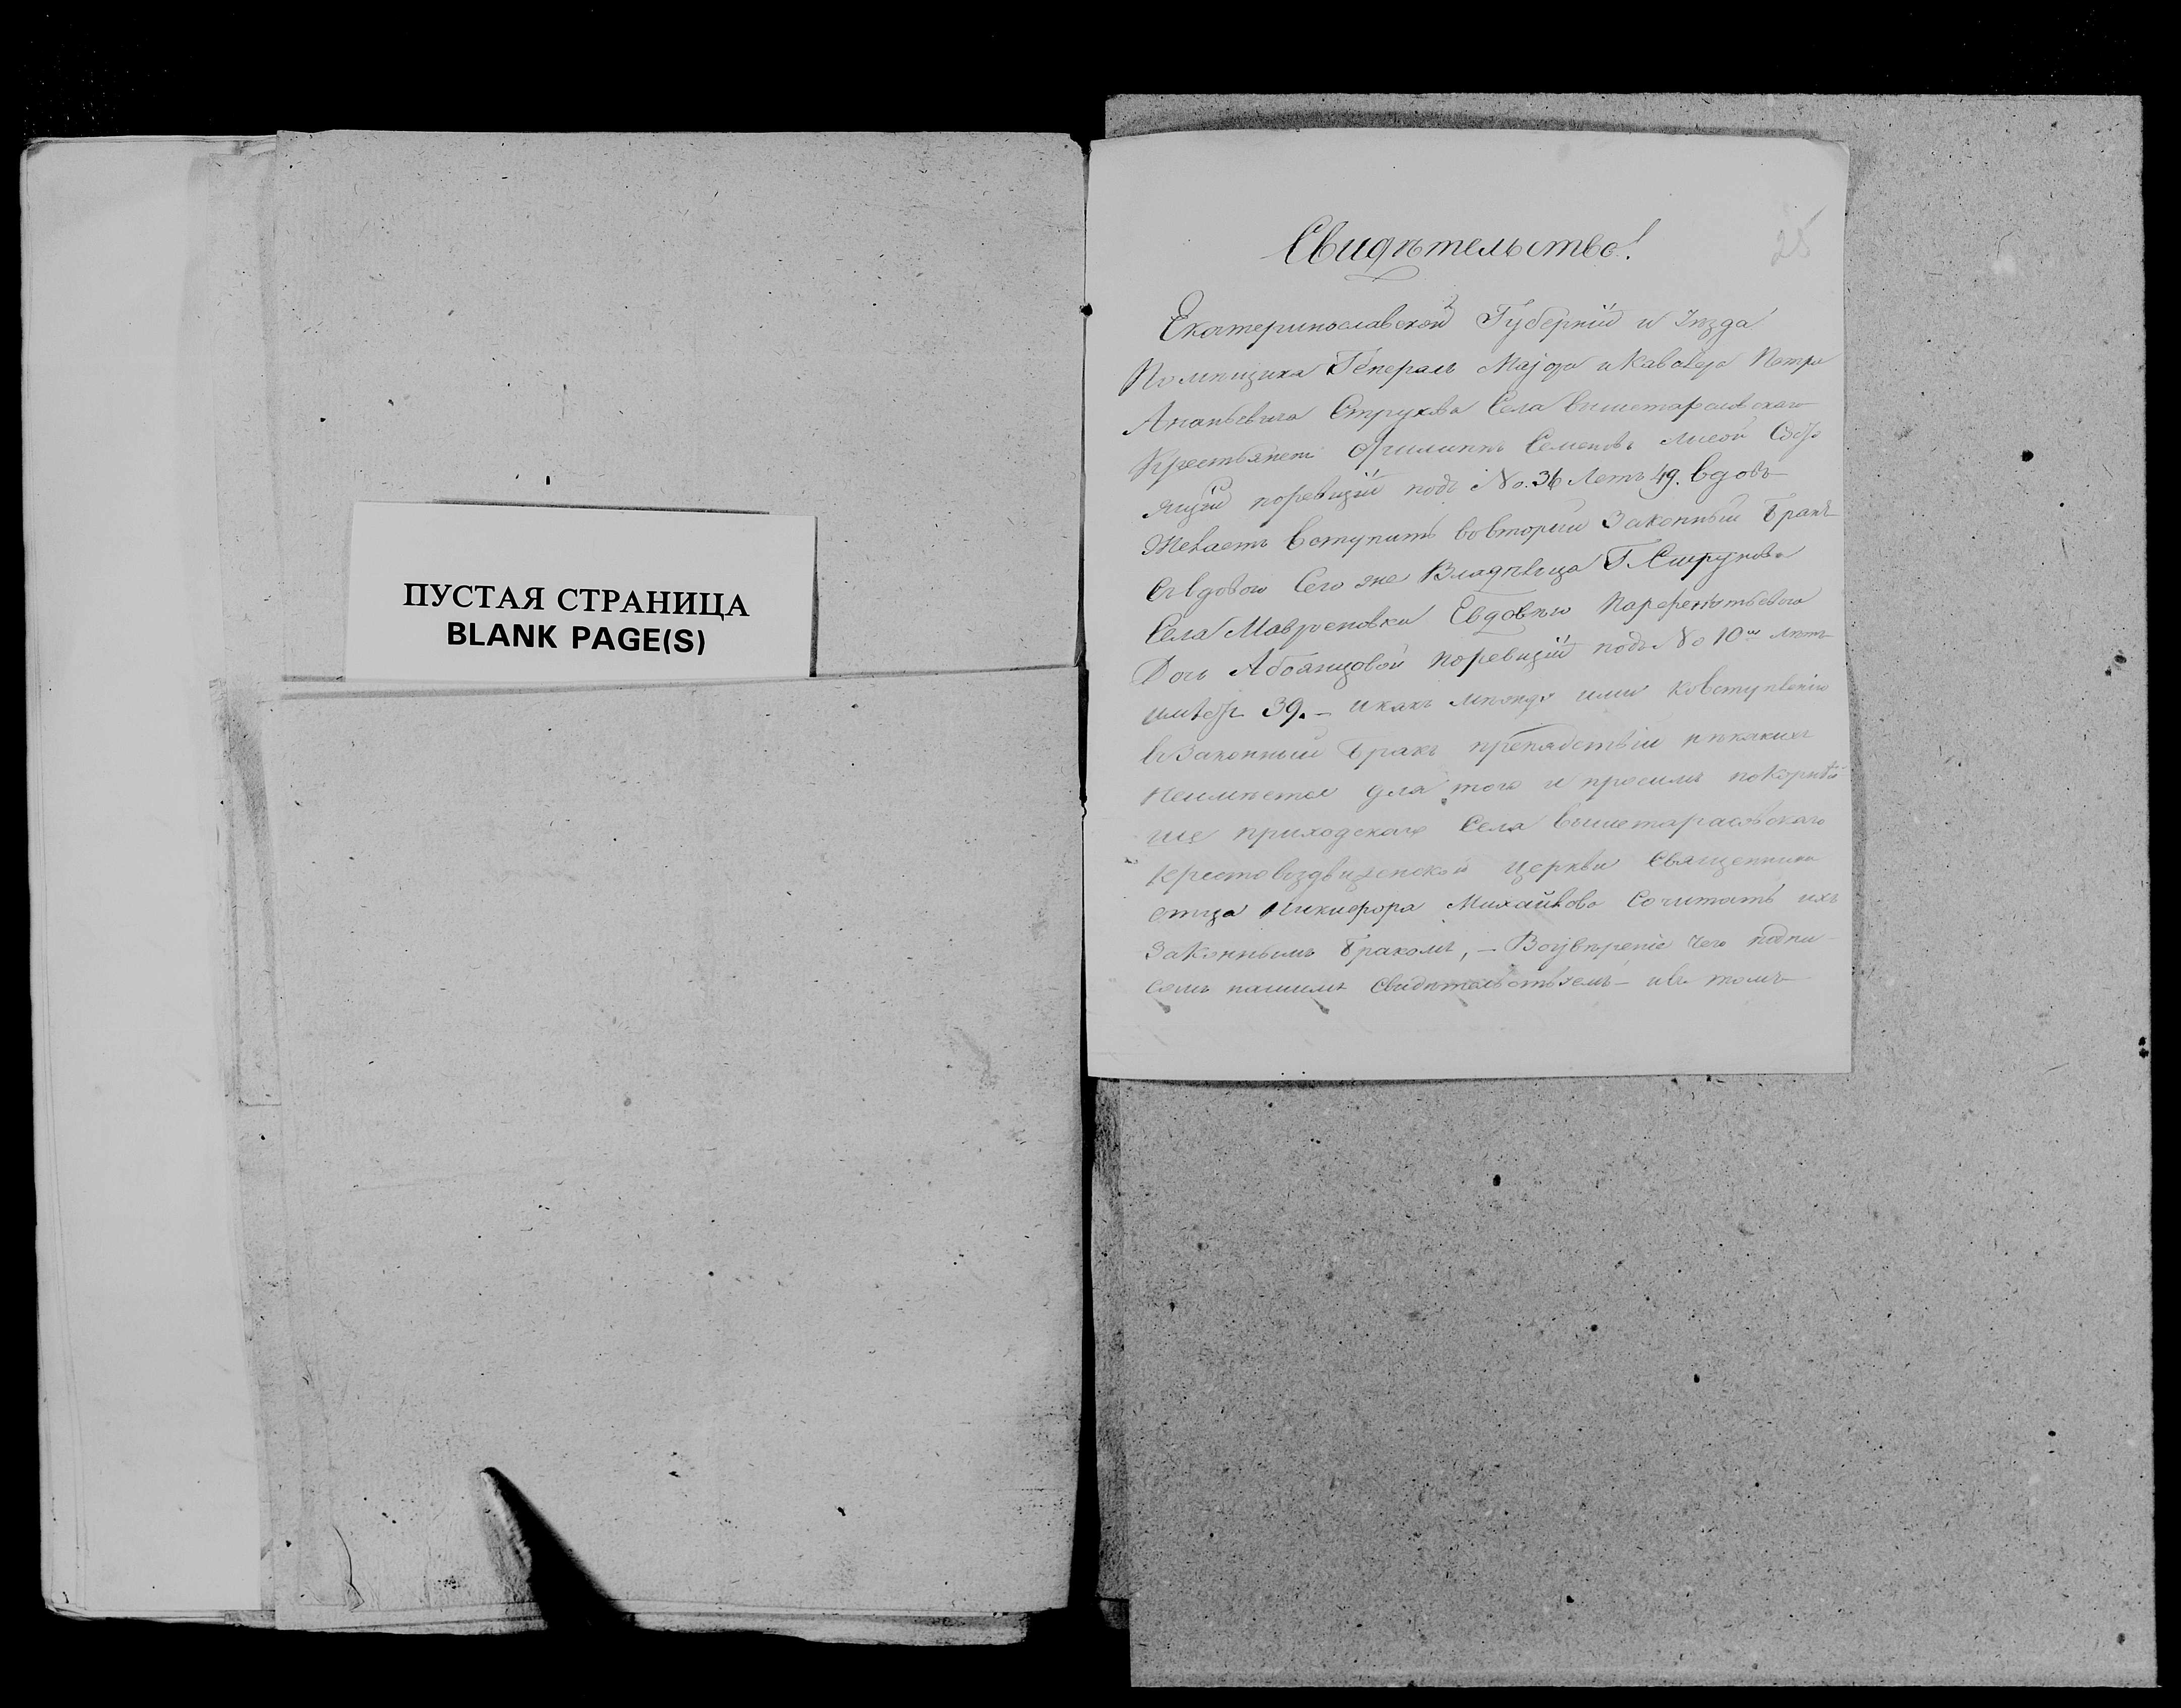 ПУСТАЯ СТРАНИЦА
BLANK PAGE(S)
25
Свидѣтельство!
Екатеринославской Губерніи и Уѣзда
Помѣщика Генералъ Маіора и Кавалера Петра
Ананьевича Струкова Села Вишетарасовскаго
Крестьянен Филиппъ Семеновъ Лисой
поревизіи подъ No. 36 Летъ 49. вдовъ
Желаетъ Вступить вовторий Законный Бракъ
Свдовою Сего же Владѣльца Г. Струкова
Села Мавреновки Евдовію Парфентьевою
Дочь поревизіи подъ No 10 лѣтъ
39. — икакъ имы ковступленію
вЗаконный Бракъ препядствіи нѣкакихъ
Неимѣется для того и просимъ покорнѣй-
ше приходскаго Села вишетарасовскаго
крестовоздвиженской церкви Священника
отца Никифора Михайлова Сочитать ихъ
Законнымъ бракомъ, — Воувѣреніе Чего подпи-
семъ нашимъ Свидѣтельствуемъ — ивъ томъ